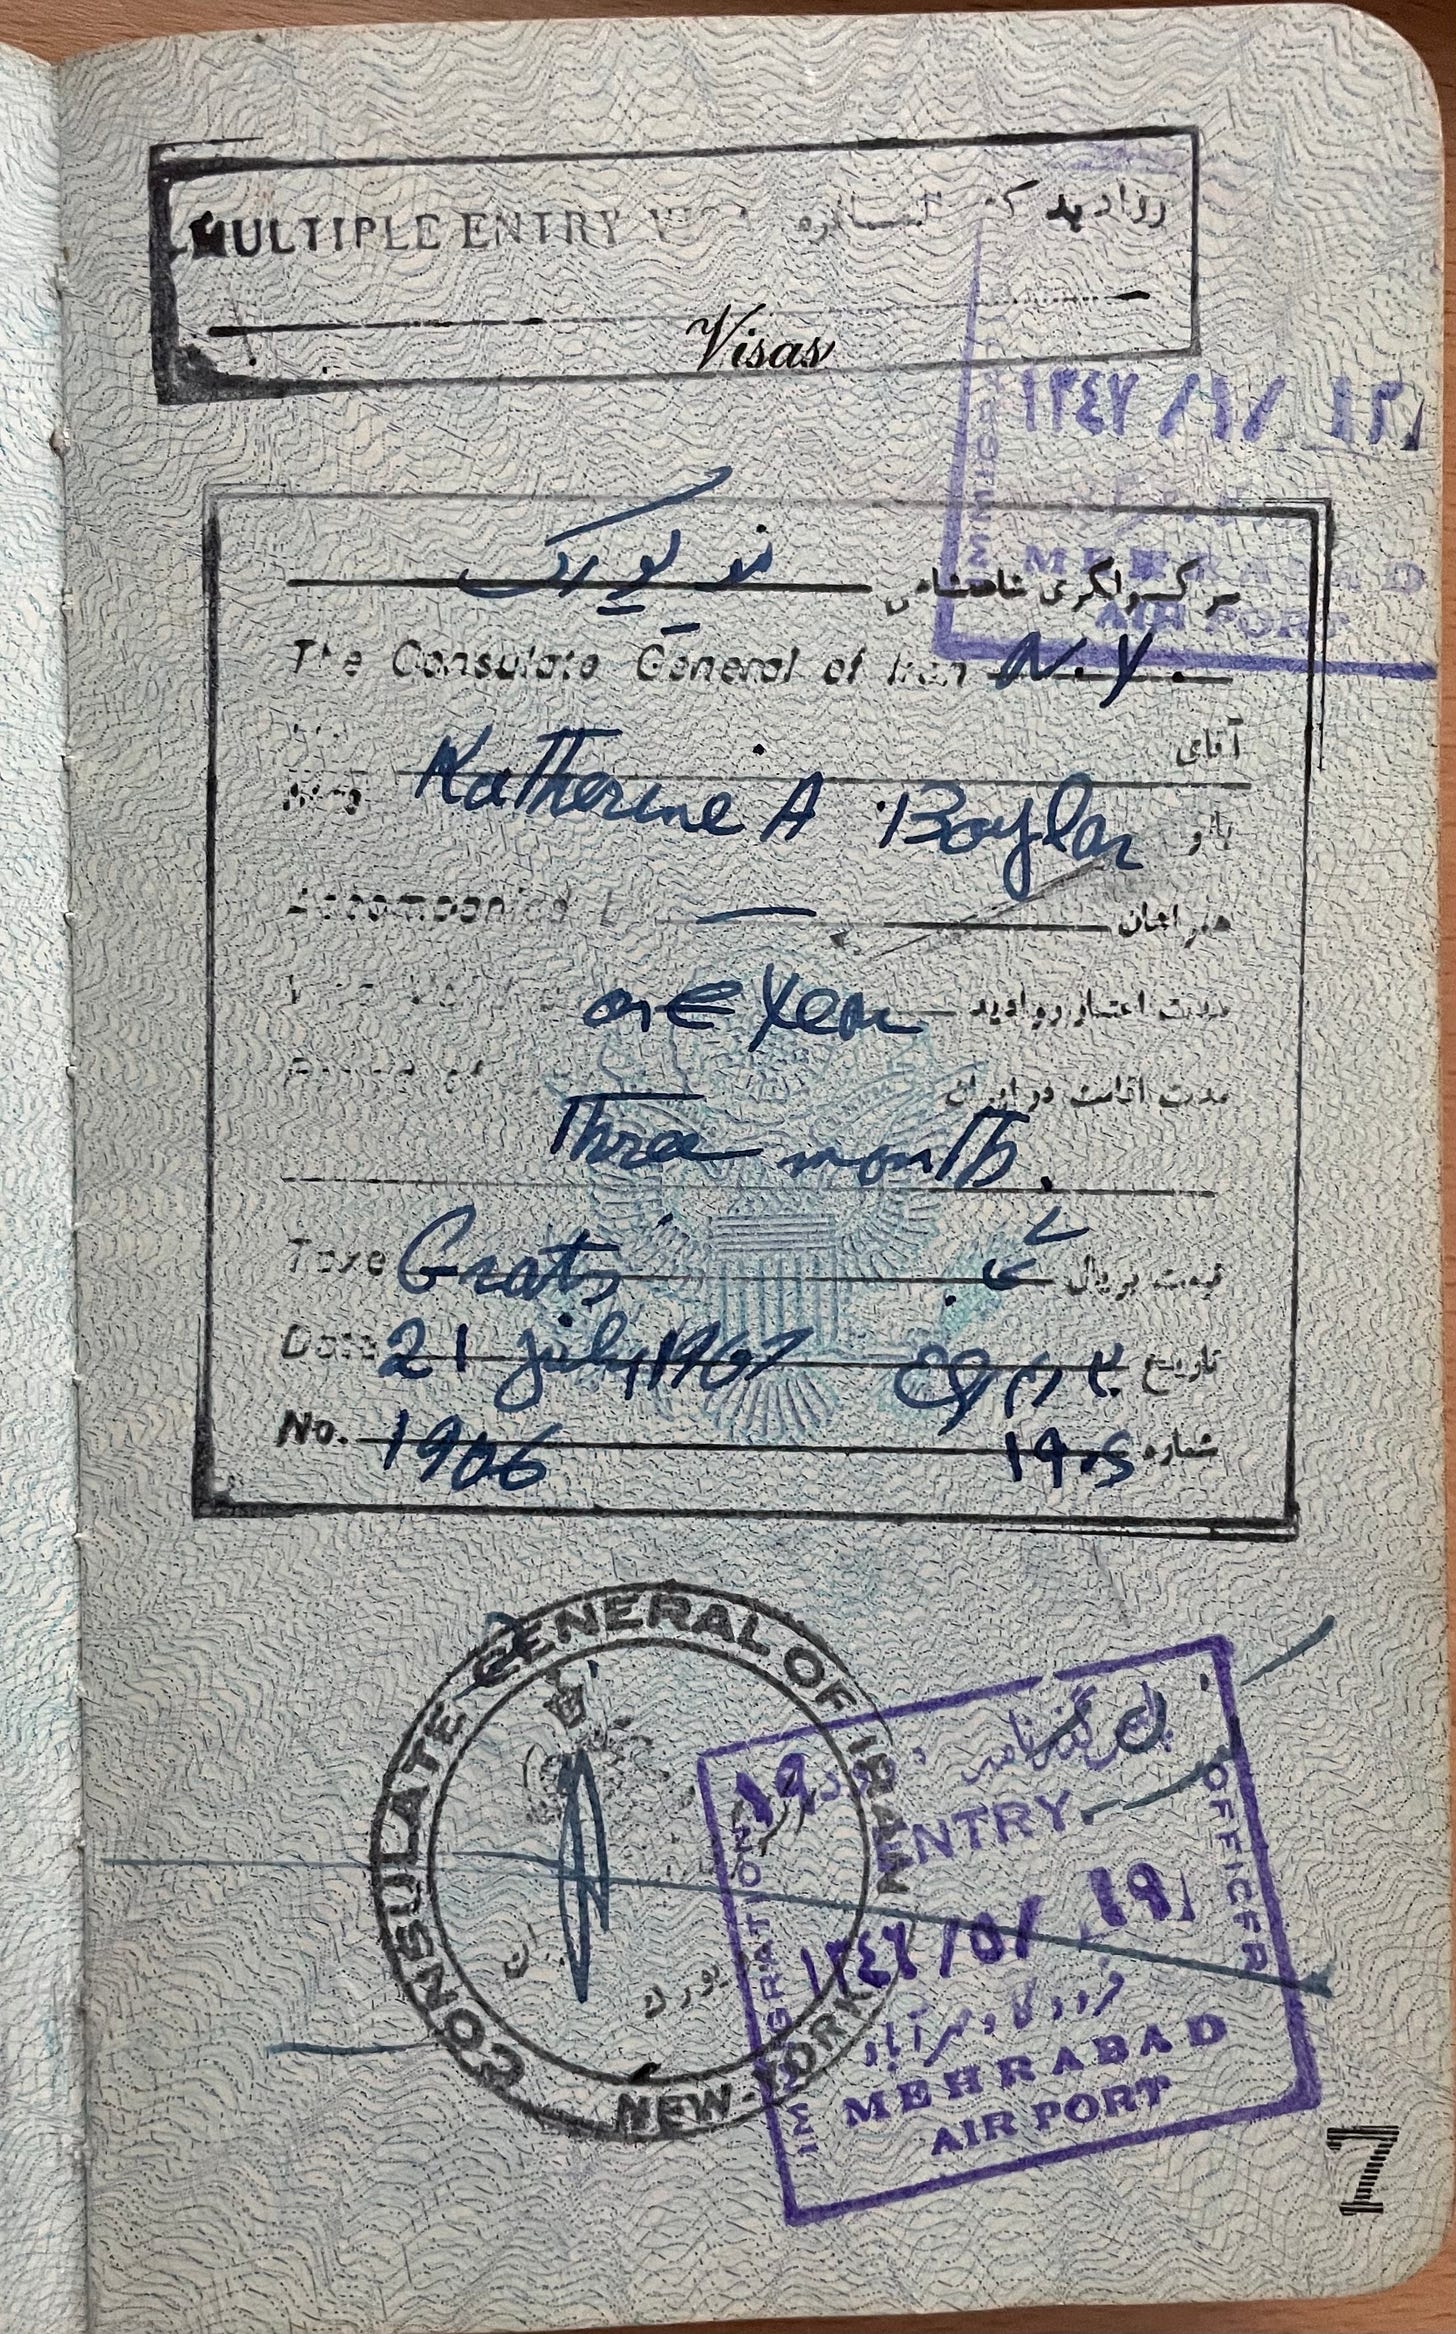 MULTIPLE ENTRY روادید
Visas
۱۳٤۷ / ۱ / ۱۳
MEHRABAD
AIR PORT
IMMIGR
نیویورک سر کنسولگری شاهنشاهی
The Consulate General of Iran N.Y.
آقای
Katherine A Boylan
بانو
Accompanied همراهان
one Year مدت اعتبار روادید
مدت اقامت در ایران
Three month.
Taxe Gratis قیمت بریال
Date 21 july, 1967 تاریخ
No. 1906 شماره
CONSULATE GENERAL OF IRAN
NEW-YORK
ENTRY
IMMIGRATION OFFICER
۱۳٤٦ / ٥ / ۱۹
فرودگاه مهرآباد
MEHRABAD
AIR PORT
7